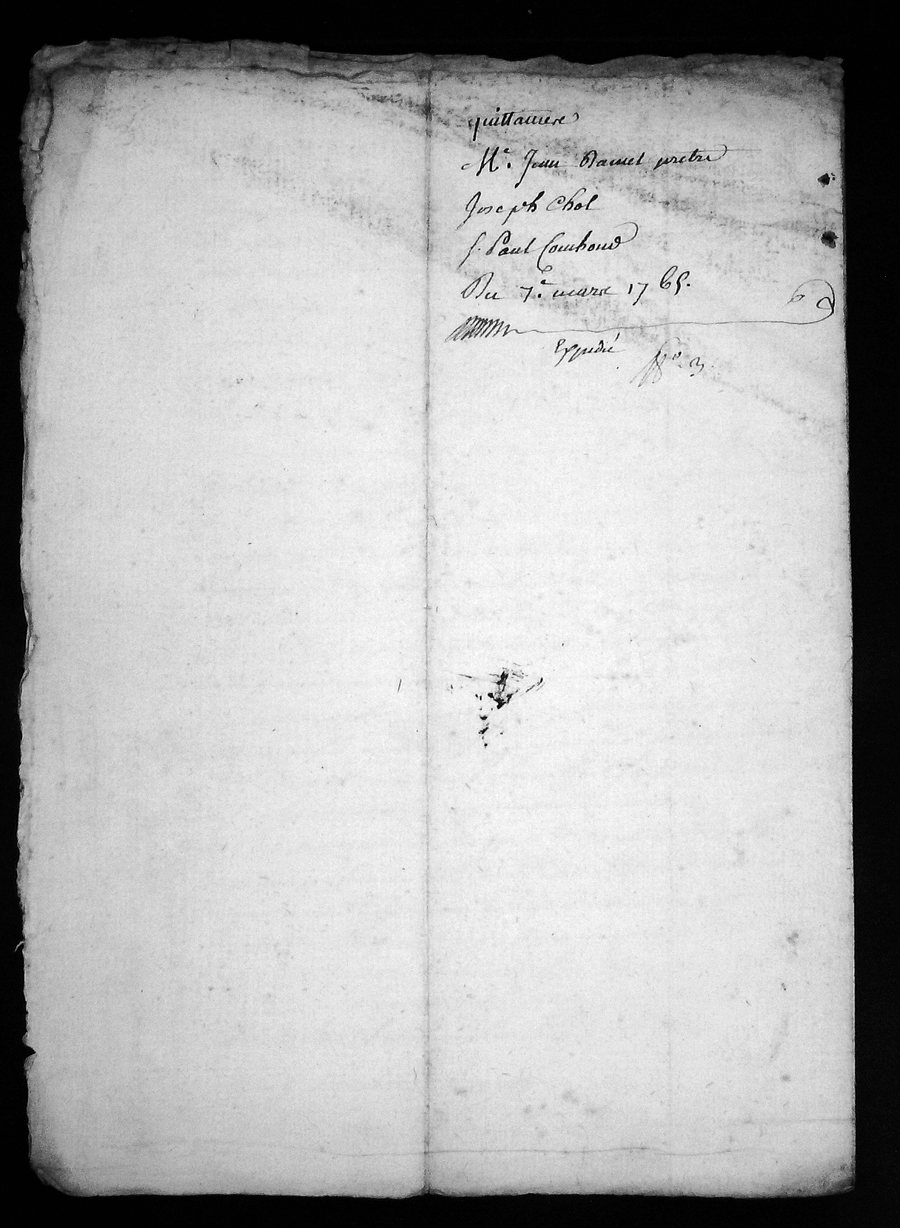 quittance
Mr. Jean Daniel pretre
Joseph Chol
S. Paul
Du 7e. mars 1765.
Expedié
No. 3